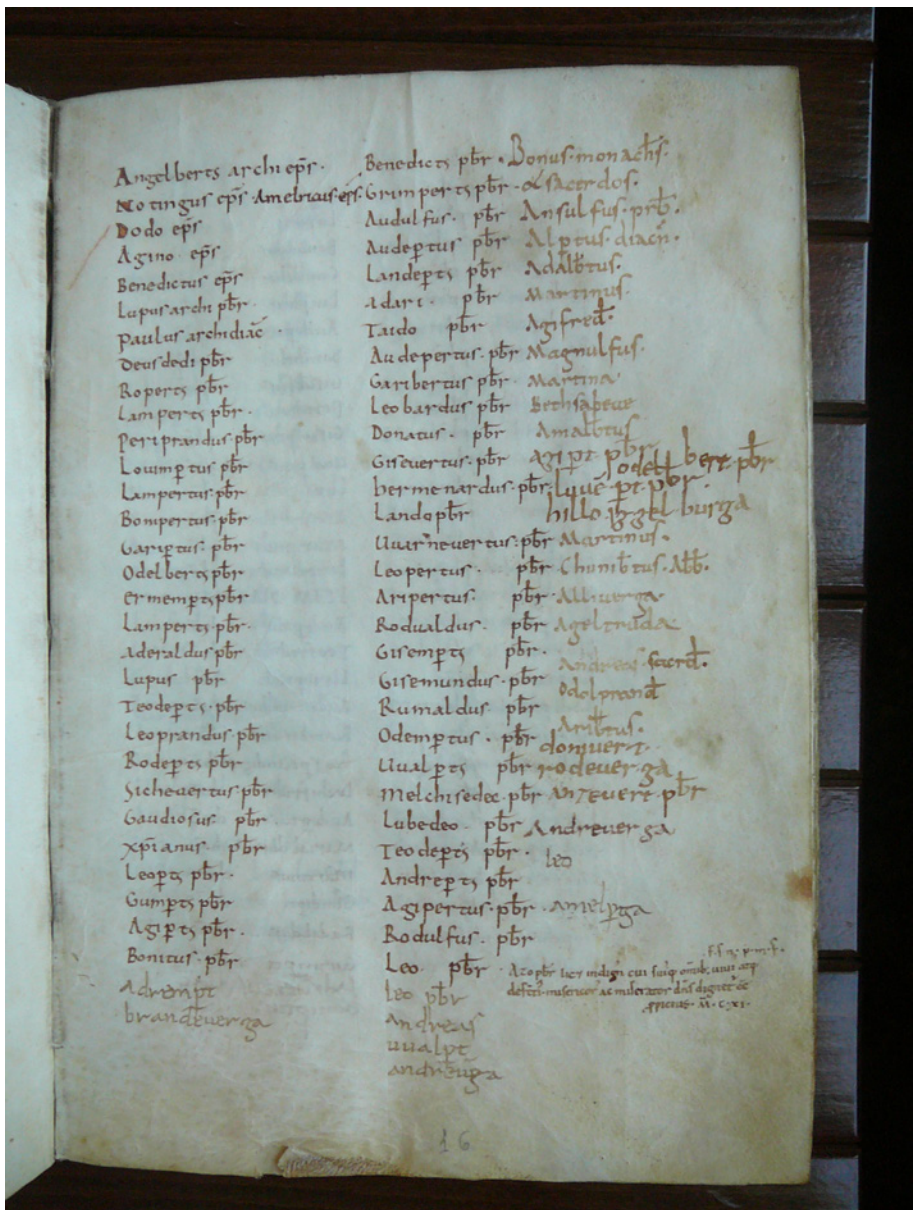 Angelberts archi eps.
Notingus eps. Amelricus eps.
Dodo eps
Agino eps
Benedictus eps
Lupus archi pbr.
Paulus archidiac.
Deusdedi pbr
Roperts pbr
Lamperts pbr.
Periprandus pbr
Louimptus pbr
Lampertus pbr
Bompertus pbr
Gariptus pbr
Odelberts pbr
Ermempts pbr
Lamperts pbr.
Aderaldus pbr
Lupus pbr
Teodepts pbr
Leoprandus pbr
Rodepts pbr
Sichevertus pbr
Gaudiosus pbr
Xpianus pbr
Leopts pbr.
Gumpts pbr
Agipts pbr.
Bonitus pbr
Adrempt
brandeverga
Benedicts pbr.
Grimperts pbr.
Audulfus. pbr
Audeptus pbr
Landepts pbr
Adari. pbr
Taido pbr
Audepertus. pbr
Garibertus pbr
Leobardus pbr
Donatus. pbr
Gisevertus. pbr
hermenardus. pbr
Lando pbr
Uuarnevertus. pbr
Leopertus. pbr
Aripertus. pbr
Rodualdus. pbr
Gisempts pbr.
Gisemundus. pbr
Rumaldus pbr
Odemptus. pbr
Uualpts pbr
Melchisedec. pbr
Lubedeo. pbr
Teodepts pbr.
Andrepts pbr
Agipertus. pbr
Rodulfus. pbr
Leo pbr
leo pbr
andreas
uualpt
Bonus. monachs.
& sacerdos.
Ansulfus. prb.
Alptus. diacn.
Adalbtus.
Martinus.
Agifred.
Magnulfus.
Martina
Bethsabeue
Amalbtus
agipt pbr
hillo
Martinus.
Chunibtus. Abb.
Alliverga
Ageltruda
Andreas. sacrd.
Odolprand
Aribtus.
donivert.
rodeverga
Andreverga
leo
Azo pbr
M. C. XI.
16